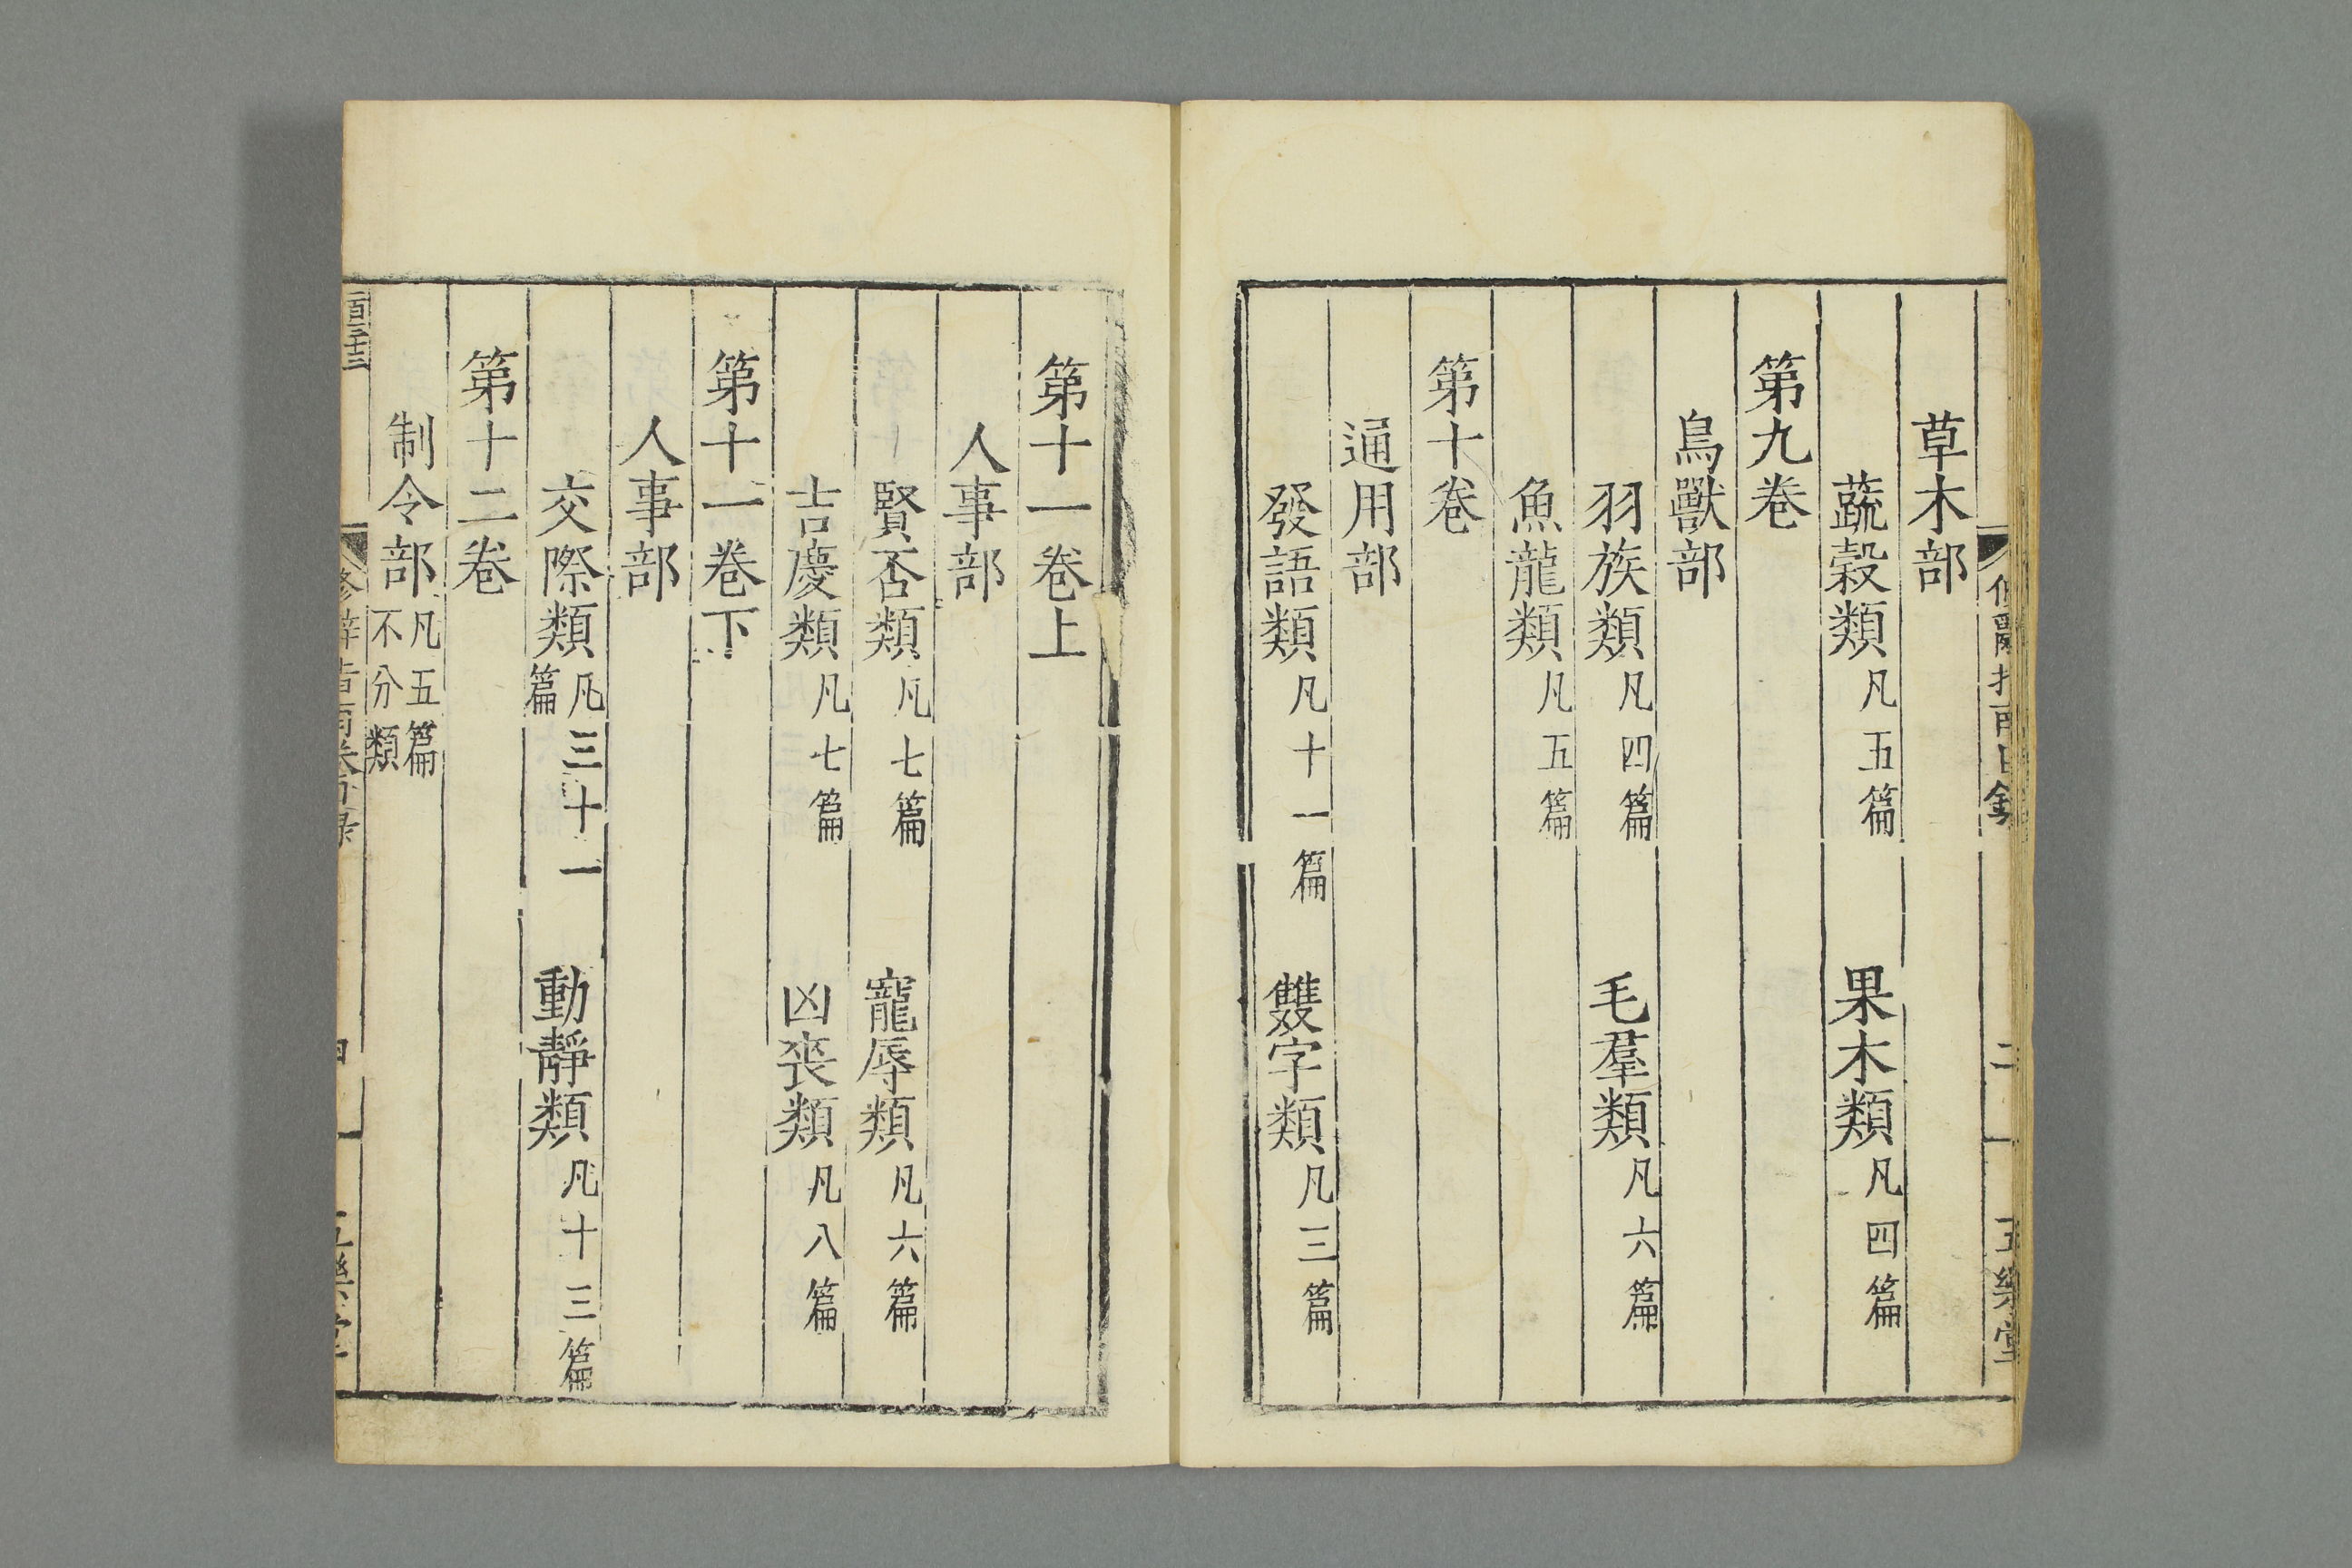 草木部
蔬穀類凡五篇　果木類凡四篇
第九卷
鳥獸部
羽族類凡四篇　毛羣類凡六篇
魚龍類凡五篇
第十卷
通用部
發語類凡十一篇　雙字類凡三篇
第十一卷上
人事部
賢否類凡七篇　寵辱類凡六篇
吉慶類凡七篇　凶喪類凡八篇
第十一卷下
人事部
交際類凡三十一篇　動靜類凡十三篇
第十二卷
制令部凡五篇不分類